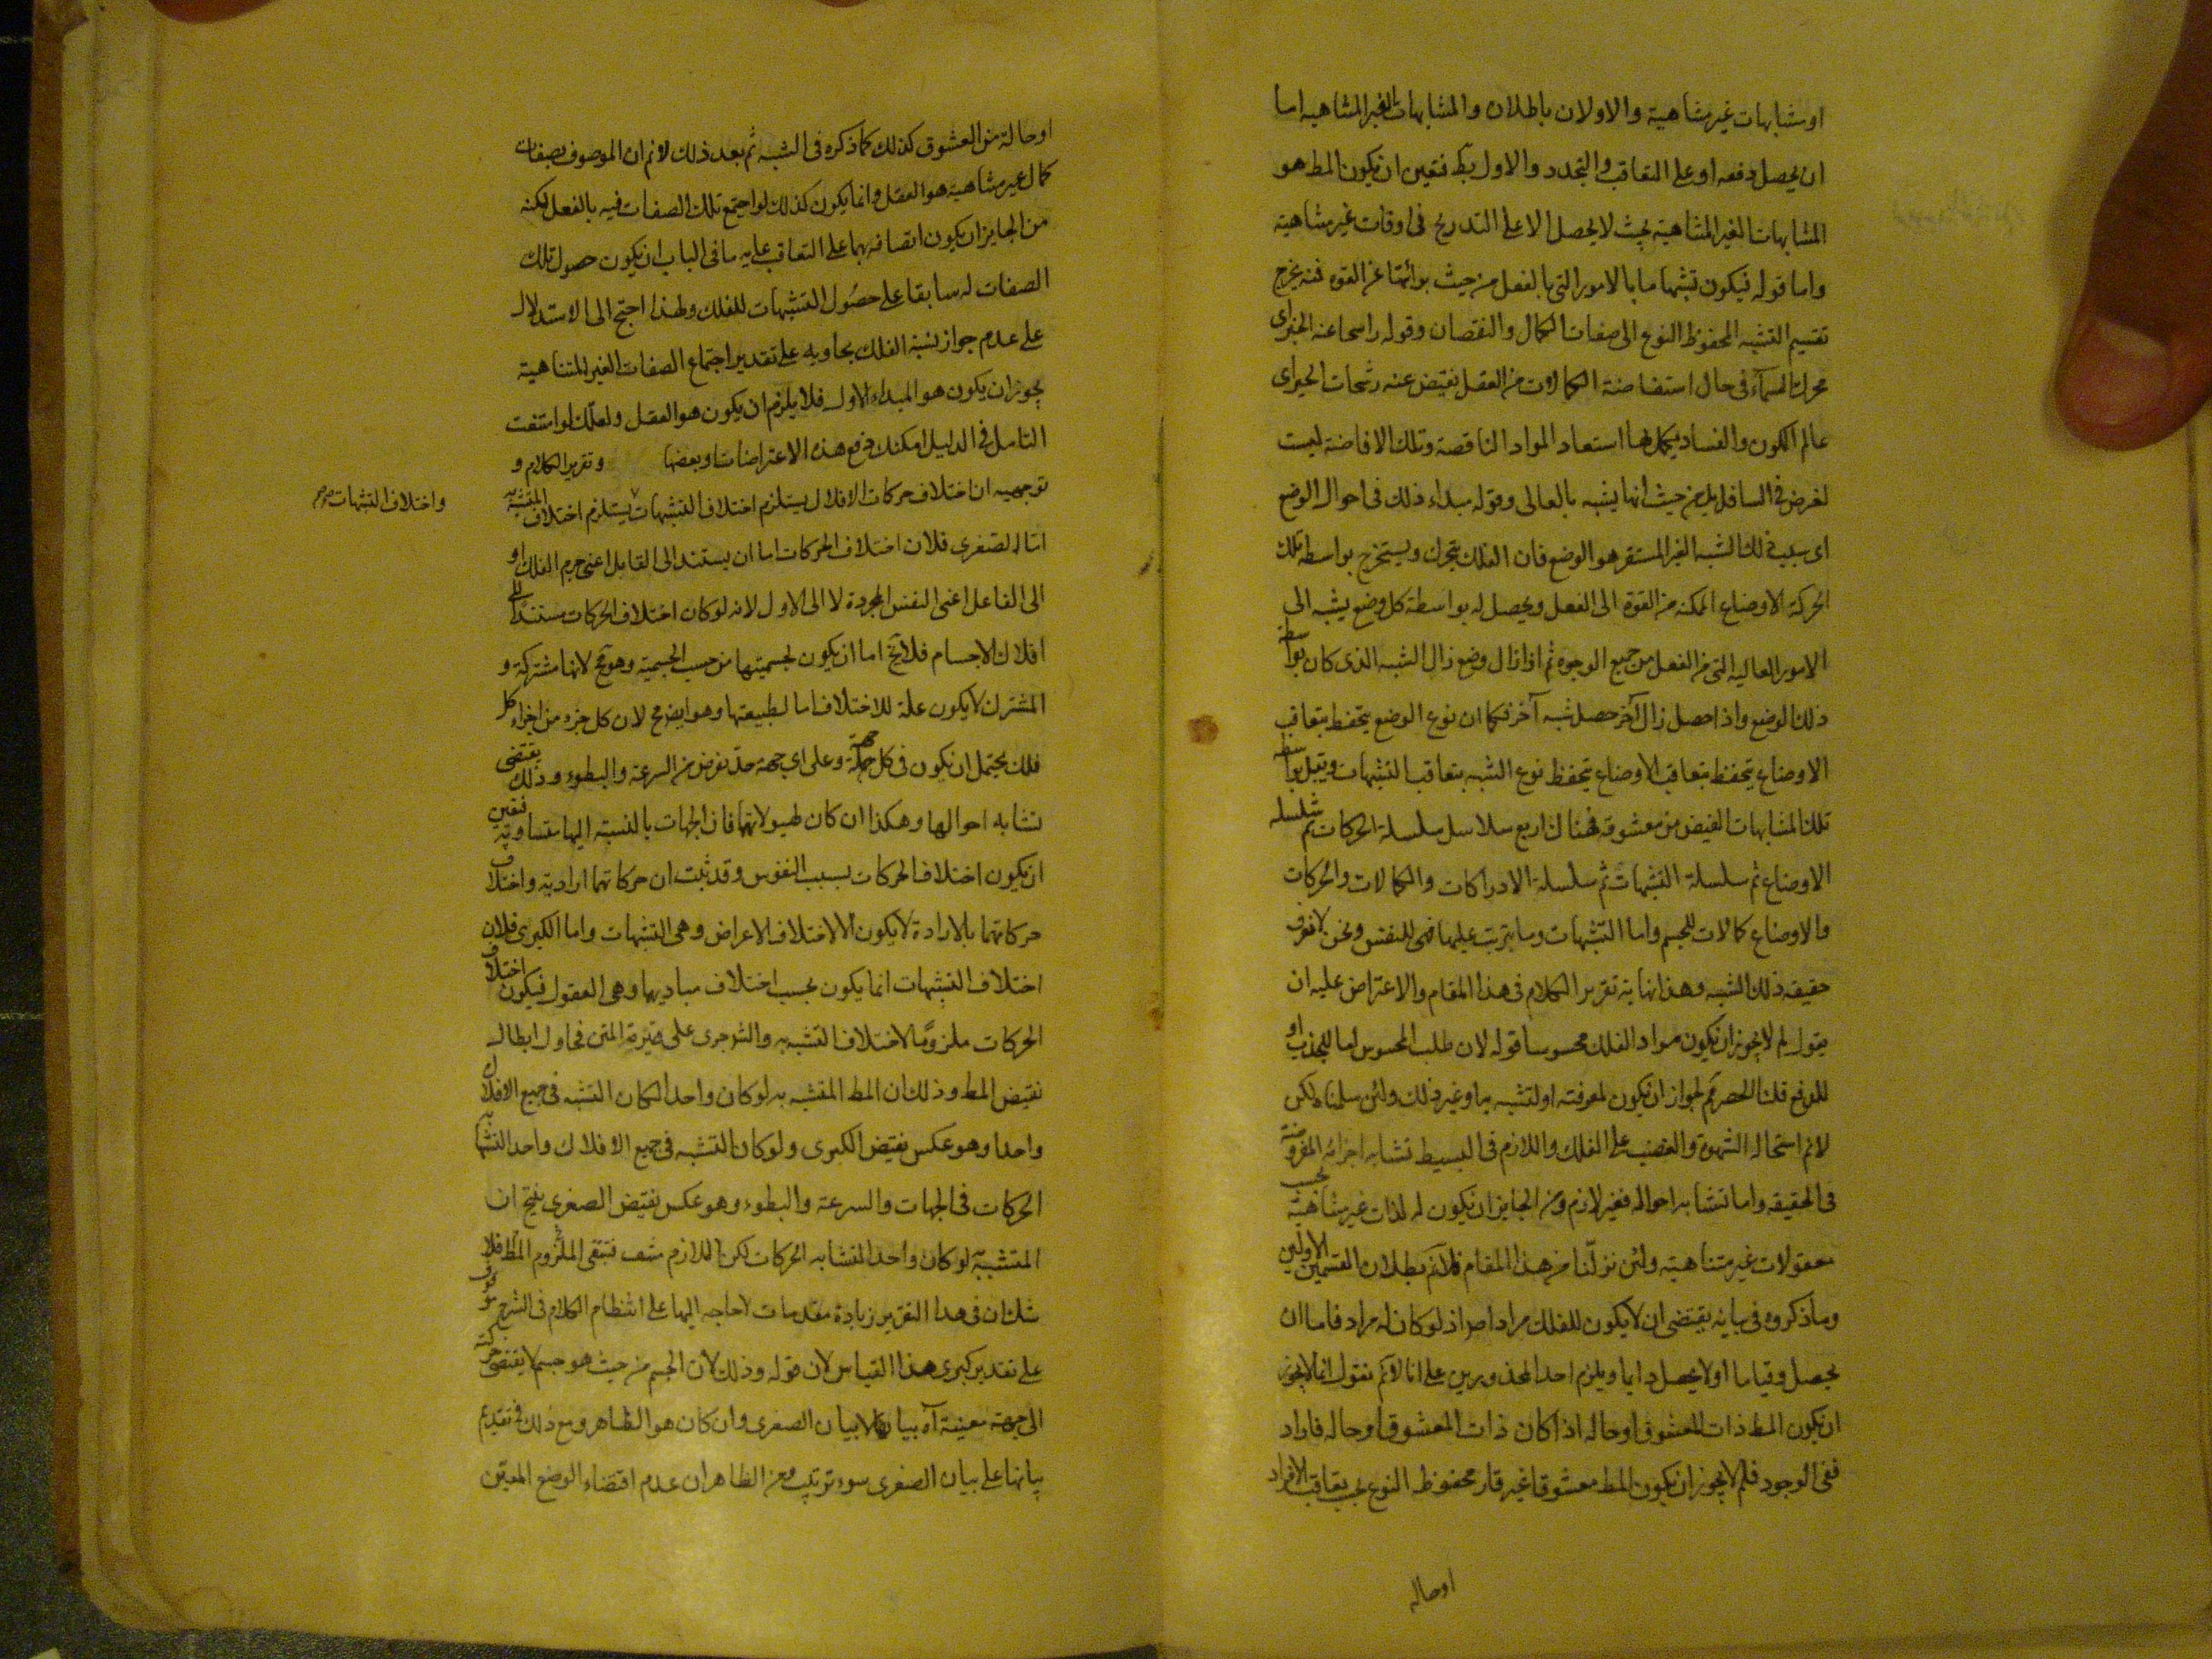 او مشابهات غير متناهية والاولان باطلان والمشابهات الغير المتناهيه اما
ان يحصل دفعه او على التعاقب والتجدد والاول بط فتعين ان يكون المط هو
المشابهات الغير المتناهية بحيث لا يحصل الا على التدريج فى اوقات غير متناهية
واما قوله فيكون تشبها ما بالامور التى بالفعل من حيث برائتها عن القوه فنه يخرج
تقسيم التشبه المحفوظ النوع الى صفات الكمال والنقصان وقوله راشحا عنه الخير اى
محرك السمآء فى حال استفاضة الكمالات من العقل يفيض عنه رشحات الخير اى
عالم الكون والفساد يكمل بها استعداد المواد الناقصة وتلك الافاضة ليست
لغرض فى السافل بل من حيث انها يشبه بالعالى وقوله مبداء ذلك فى احوال الوضع
اى سبب ذلك الشبه الغير المستقر هو الوضع فان الفلك يتحرك ويستخرج بواسطه تلك
الحركة الاوضاع الممكنه من القوة الى الفعل ويحصل له بواسطة كل وضع يشبه الى
الامور العاليه التى هى بالفعل من جميع الوجوه ثم اذا زال وضع زال الشبه الذى كان بواسطة
ذلك الوضع واذا حصل زال آخر حصل شبه آخر فكما ان نوع الوضع يتحفظ بتعاقب
الاوضاع يتحفظ بتعاقب الاوضاع يتحفظ نوع الشبه بتعاقب التشبهات ويقبل بواسطة
تلك المشابهات الفيض من معشوقه فهناك اربع سلاسل سلسلة الحركات ثم سلسله
الاوضاع ثم سلسلة التشبهات ثم سلسلة الادراكات والكمالات والحركات
والاوضاع كمالات للجسم واما التشبهات وما يترتب عليها فهى للنفس ونحن لا نعرف
حقيقه ذلك الشبه وهذا نهاية تقرير الكلام فى هذا المقام والاعتراض عليه ان
يقول لم لا يجوز ان يكون مراد الفلك محسوسا قوله لان طلب المحسوس اما للجذب او
للدفع قلنا الحصر مم لجواز ان يكون لمعرفته او لتشبه به او غير ذلك ولئن سلمناه لكن
لا نم استحاله الشهوة والغضب على الفلك واللازم فى البسيط تشابه اجزائه المفروضة
فى الحقيقه واما تشابه احواله فغير لازم ومن الجايز ان يكون له لذات غير متناهية بحسب
معقولات غير متناهية ولئن نزلنا من هذا المقام فلا نم بطلان القسمين الاولين
وما ذكروه فى بيانه يقتضى ان لا يكون للفلك مراد اصلا اذ لو كان له مراد فاما ان
يحصل وقتا ما او لا يحصل دايما ويلزم احد المحذورين على انا لا نم نقول انما لا يجوز
ان يكون المط ذات المعشوق او حاله اذا كان ذات المعشوق او حاله قار اد
ففى الوجود فلم لا يجوز ان يكون المط معشوقا غير قار محفوظ النوع بحسب تعاقب الافراد
او حاله
او حالة من المعشوق كذلك كما ذكره فى الشبه ثم بعد ذلك لا نم ان الموصوف بصفات
كمال غير متناهية هو العقل وانما يكون كذلك لو اجتمع تلك الصفات فيه بالفعل لكنه
من الجايز ان يكون اتصافه بها على التعاقب غاية ما فى الباب ان يكون حصول تلك
الصفات له سابقا على حصول التشبهات للفلك ولهذا احتج الى الاستدلال
على عدم جواز تشبه الفلك بحاويه على تقدير اجتماع الصفات الغير المتناهية
يجوز ان يكون هو المبداء الاول فلا يلزم ان يكون هو العقل ولعلك لو امعنت
التامل فى الدليل امكنك دفع هذه الاعتراضات او بعضها وتقرير الكلام و
توجيهه ان اختلاف حركات الافلاك يستلزم اختلاف التشبهات يستلزم اختلاف المتشبه به
واختلاف التشبهات صح
اما الصغرى فلان اختلاف الحركات اما ان يستند الى القابل اعنى جرم الفلك او
الى الفاعل اعنى النفس المجردة لا الى الاول لانه لو كان اختلاف الحركات مستندا الى
افلاك الاجسام فلا يخ اما ان يكون لجسميتها من حيث الجسمية وهو مح لانها مشتركة و
المشترك لا يكون علة للاختلاف اما لطبيعتها وهو ايض مح لان كل جزء من اجزاء كل
فلك يحتمل ان يكون فى كل جهة وعلى اى جهة حد يفرض من السرعة والبطوء وذلك يقتضى
تشابه احوالها وهكذا ان كان لهيولاتها فان الجهات بالنسبة اليها متساوية فتعين
ان يكون اختلاف الحركات بسبب النفوس وقد ثبت ان حركاتها ارادية واختلاف
حركاتها بالارادة لا يكون الا لاختلاف الاغراض وهى التشبهات واما الكبرى فلان
اختلاف التشبهات انما يكون بحسب اختلاف مباديها وهى العقول فيكون اختلاف
الحركات ملزوما لاختلاف المتشبه به والش جرى على وتيرة المتن فحاول ابطال
نقيض المط وذلك ان المط المتشبه به لو كان واحدا لكان التشبه فى جميع الافلاك
واحدا وهو عكس نقيض الكبرى ولو كان التشبه فى جميع الافلاك واحدا لتشابه
الحركات فى الجهات والسرعة والبطوء وهو عكس نقيض الصغرى ينتج ان
المتشبه به لو كان واحدا لتشابه الحركات لكن اللازم منتف فينتفى الملزوم المط فلا
شك ان فى هذا التقرير زيادة مقدمات لا حاجه اليها على انتظام الكلام فى الشرح موقوف
على تقدير كبرى هذا القياس لان قوله وذلك لان الجسم من حيث هو جسم لا يقتضى حركة
الى جهة معينة آه بيان لها لا بيان الصغرى وان كان هو الظاهر ومع ذلك فتقديم
بيانها على بيان الصغرى سوء ترتيب ومن الظاهر ان عدم اقتضاء الوضع المعين